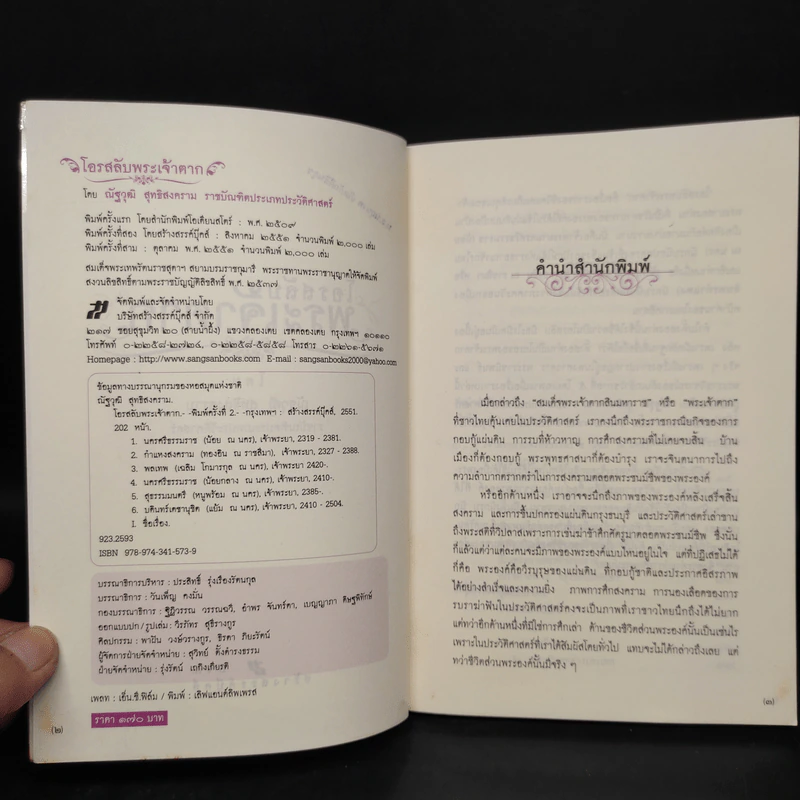 โอรสลับพระเจ้าตาก
โดย ณัฐวุฒิ สุทธิสงคราม ราชบัณฑิตประเภทประวัติศาสตร์
พิมพ์ครั้งแรก โดยสำนักพิมพ์โอเดียนสโตร์ : พ.ศ. ๒๕๐๙
พิมพ์ครั้งที่สอง โดยสร้างสรรค์บุ๊คส์ : สิงหาคม ๒๕๕๑ จำนวนพิมพ์ ๒,๐๐๐ เล่ม
พิมพ์ครั้งที่สาม : ตุลาคม พ.ศ. ๒๕๕๑ จำนวนพิมพ์ ๒,๐๐๐ เล่ม
สมเด็จพระเทพรัตนราชสุดาฯ สยามบรมราชกุมารี พระราชทานพระราชานุญาตให้จัดพิมพ์
สงวนลิขสิทธิ์ตามพระราชบัญญัติลิขสิทธิ์ พ.ศ. ๒๕๓๗
จัดพิมพ์และจัดจำหน่ายโดย
บริษัทสร้างสรรค์บุ๊คส์ จำกัด
๒๑๗ ซอยสุขุมวิท ๒๐ (สายน้ำผึ้ง) แขวงคลองเตย เขตคลองเตย กรุงเทพฯ ๑๐๑๑๐
โทรศัพท์ ๐-๒๒๕๘-๒๗๒๔, ๐-๒๒๕๘-๕๘๕๘ โทรสาร ๐-๒๒๖๑-๕๖๗๑
Homepage : http://www.sangsanbooks.com E-mail : sangsanbooks2000@yahoo.com
ข้อมูลทางบรรณานุกรมของหอสมุดแห่งชาติ
ณัฐวุฒิ สุทธิสงคราม.
โอรสลับพระเจ้าตาก.- -พิมพ์ครั้งที่ 2.- -กรุงเทพฯ : สร้างสรรค์บุ๊คส์, 2551.
202 หน้า.
1. นครศรีธรรมราช (น้อย ณ นคร), เจ้าพระยา, 2319 - 2381.
2. กำแหงสงคราม (ทองอิน ณ ราชสีมา), เจ้าพระยา, 2327 - 2388.
3. พลเทพ (เฉลิม โกมารกุล ณ นคร), เจ้าพระยา 2420-.
4. นครศรีธรรมราช (น้อยกลาง ณ นคร), เจ้าพระยา, 2410-.
5. สุธรรมมนตรี (หนูพร้อม ณ นคร), เจ้าพระยา, 2385-.
6. บดินทร์เดชานุชิต (แย้ม ณ นคร), เจ้าพระยา, 2410 - 2504.
I. ชื่อเรื่อง.
923.2593
ISBN 978-974-341-573-9
บรรณาธิการบริหาร : ประสิทธิ์ รุ่งเรืองรัตนกุล
บรรณาธิการ : วันเพ็ญ คงมั่น
กองบรรณาธิการ : ฐิฏิวรรณ วรรณฉวี, อำพร จันทร์ดา, เบญญาภา ดิษฐพิทักษ์
ออกแบบปก / รูปเล่ม : วีรภัทร สุธีรางกูร
ศิลปกรรม : พาฝัน วงษ์วรางกูร, ธีรดา ภิยะรัตน์
ผู้จัดการฝ่ายจัดจำหน่าย : สุวิทย์ ตั้งดำรงธรรม
ฝ่ายจัดจำหน่าย : รุ่งรัตน์ เถกิงเกียรติ
เพลท : เอ็น.ซี.ฟิล์ม / พิมพ์ : เลิฟแอนด์ลิพเพรส
ราคา ๑๗๐ บาท
(๒)
คำนำสำนักพิมพ์
เมื่อกล่าวถึง "สมเด็จพระเจ้าตากสินมหาราช" หรือ "พระเจ้าตาก"
ที่ชาวไทยคุ้นเคยในประวัติศาสตร์ เราคงนึกถึงพระราชกรณียกิจของการ
กอบกู้แผ่นดิน การรบที่ห้าวหาญ การศึกสงครามที่ไม่เคยจบสิ้น บ้าน
เมืองที่ต้องกอบกู้ พระพุทธศาสนาที่ต้องบำรุง เราจะจินตนาการไปถึง
ความลำบากตรากตรำในการสงครามตลอดพระชนม์ชีพของพระองค์
หรืออีกด้านหนึ่ง เราอาจจะนึกถึงภาพของพระองค์หลังเสร็จสิ้น
สงคราม และการขึ้นปกครองแผ่นดินกรุงธนบุรี และประวัติศาสตร์เล่าขาน
ถึงพระสติที่วิปลาสเพราะการเข่นฆ่าข้าศึกศัตรูมาตลอดพระชนม์ชีพ ซึ่งนั่น
ก็แล้วแต่ว่าแต่ละคนจะมีภาพของพระองค์แบบไหนอยู่ในใจ แต่ที่ปฏิเสธไม่ได้
ก็คือ พระองค์คือวีรบุรุษของแผ่นดิน ที่กอบกู้ชาติและประกาศอิสรภาพ
ได้อย่างสำเร็จและงดงามยิ่ง ภาพการศึกสงคราม การนองเลือดของการ
รบราฆ่าฟันในประวัติศาสตร์คงจะเป็นภาพที่เราชาวไทยนึกถึงได้ไม่ยาก
แต่ทว่าอีกด้านหนึ่งที่มิใช่การศึกเล่า ด้านของชีวิตส่วนพระองค์นั้นเป็นเช่นไร
เพราะในประวัติศาสตร์ที่เราได้สัมผัสโดยทั่วไป แทบจะไม่ได้กล่าวถึงเลย แต่
ทว่าชีวิตส่วนพระองค์นั้นมีจริง ๆ
(๓)